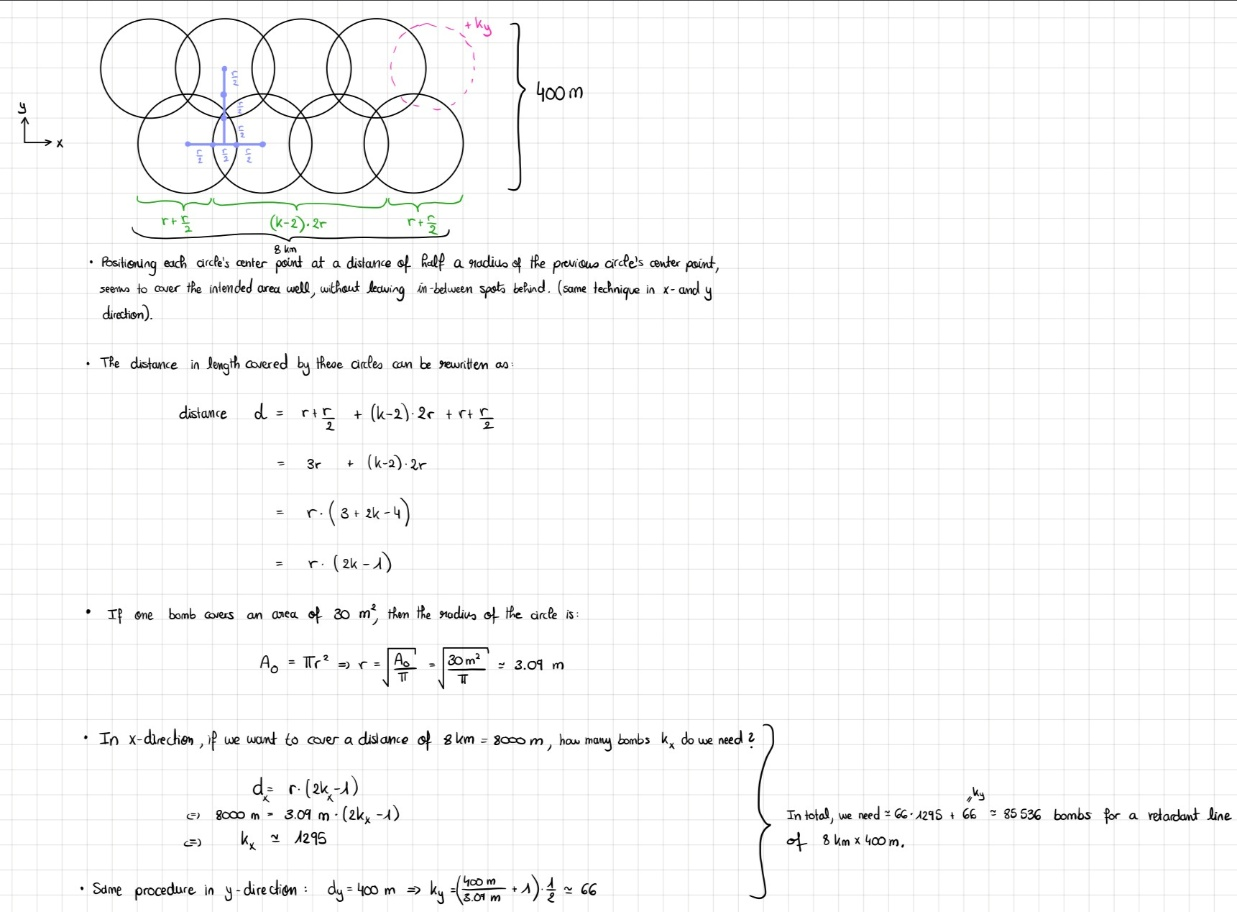 +ky
400 m
y
x
r/2
r/2
r/2
r/2 r/2 r/2
r + r/2 (k-2)·2r r + r/2
8 km
• Positioning each circle's center point at a distance of half a radius of the previous circle's center point,
seems to cover the intended area well, without leaving in-between spots behind. (same technique in x- and y
direction).
• The distance in length covered by these circles can be rewritten as:
distance d = r + r/2 + (k-2)·2r + r + r/2
= 3r + (k-2)·2r
= r·(3 + 2k - 4)
= r·(2k - 1)
• If one bomb covers an area of 30 m², then the radius of the circle is:
A₀ = πr² => r = √(A₀/π) = √(30 m²/π) ≃ 3.09 m
• In x-direction, if we want to cover a distance of 8 km = 8000 m, how many bombs kₓ do we need?
dₓ = r·(2kₓ-1)
<=> 8000 m = 3.09 m·(2kₓ-1)
<=> kₓ ≃ 1295
• Same procedure in y-direction: dy = 400 m => ky = (400 m/3.09 m + 1)·1/2 ≃ 66
ky
In total, we need ≃ 66·1295 + 66 ≃ 85 536 bombs for a retardant line
of 8 km x 400 m.